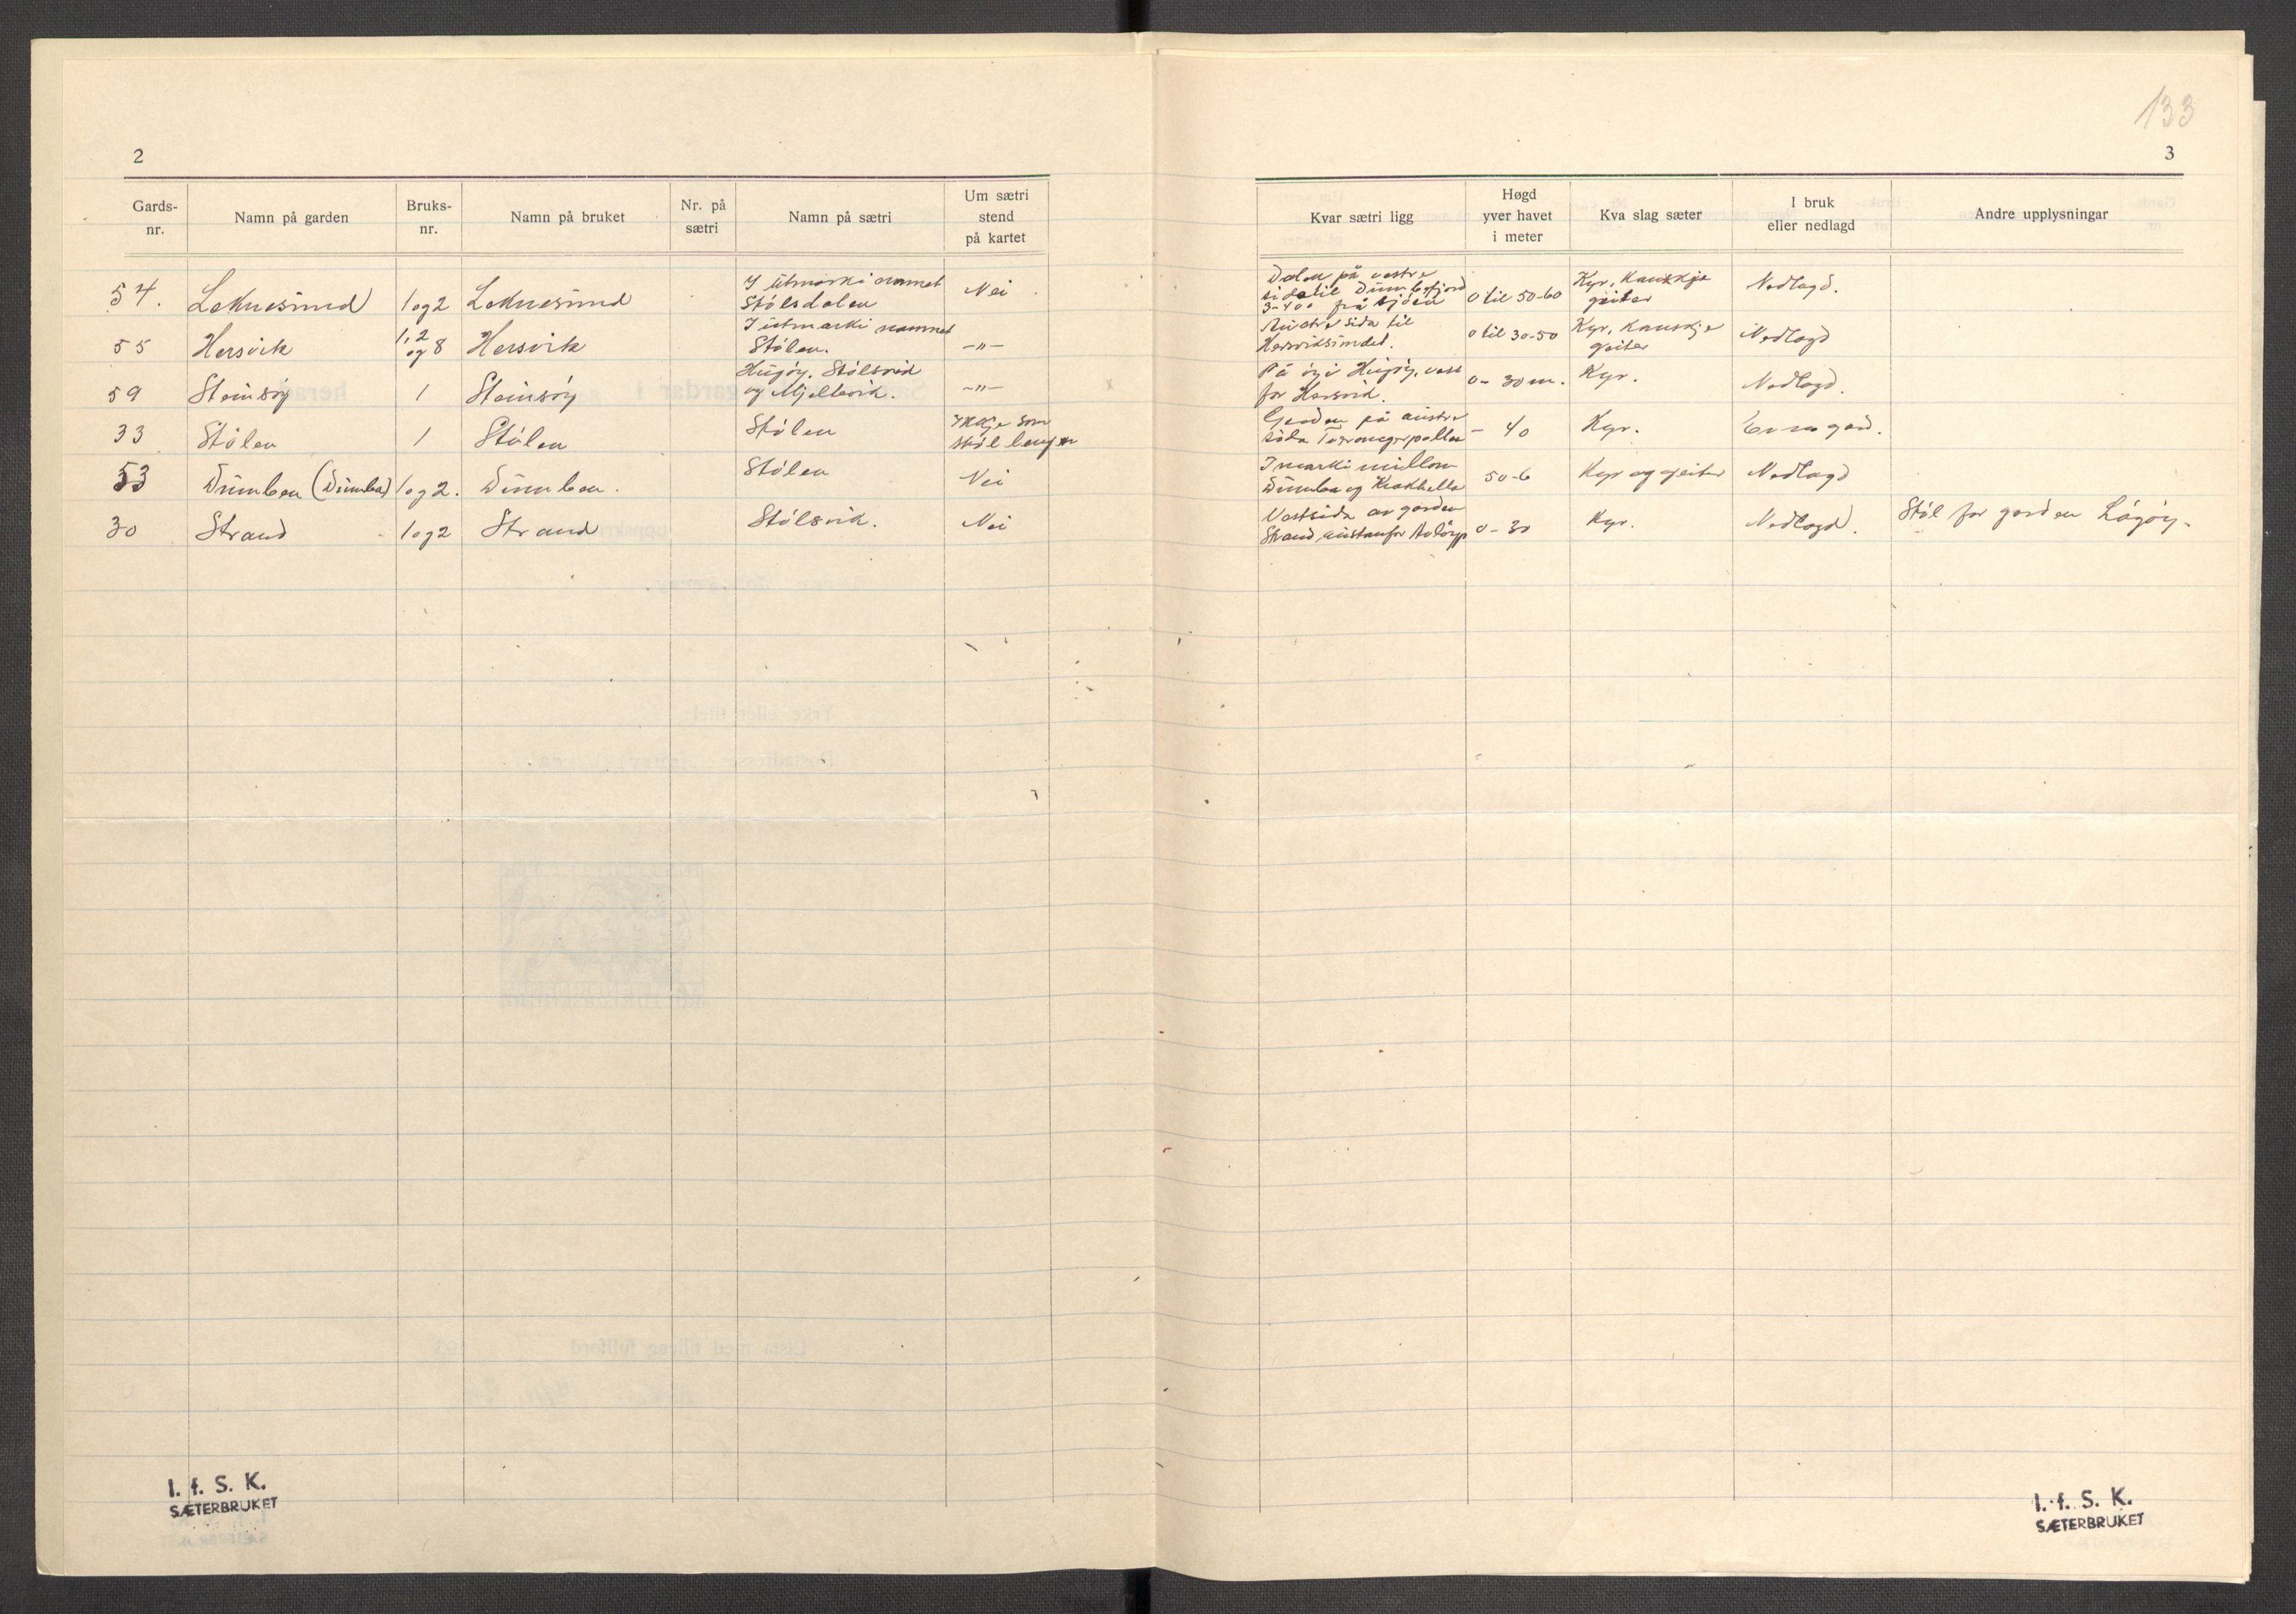 133
2
3
Gards-nr. Namn på garden Bruks-nr. Namn på bruket Nr. på sætri Namn på sætri Um sætri stend på kartet
Kvar sætri ligg Høgd yver havet i meter Kva slag sæter I bruk eller nedlagd Andre upplysningar
54. Leknesund 1 og 2 Leknesund I utmarki namnet Stølsdalen Nei
Dalen på vestre sida til Dumbefjord 3-400 frå sjøen 0 til 50-60 Kyr, kanskje geiter Nedlagd.
55 Hersvik 1, 2 og 8 Hersvik I utmarki namnet Stølen. -"-
Austre sida til Hersviksundet. 0 til 30-50 Kyr, kanskje geiter Nedlagd
59 Steinsøy 1 Steinsøy Hugøy. Stølsvik og Mjellevik. -"-
På øyi Hugøy, vest for Hersvik. 0 - 30 m. Kyr. Nedlagd.
33 Stølen 1 Stølen Stølen Ikkje som støl lenger
Garden på austre sida - 40 Kyr. Er no gard.
53 Dumben (Dumba) 1 og 2. Dumben. Stølen Nei
I marki millom Dumba og Krakhella 50-6 Kyr og geiter Nedlagd
30 Strand 1 og 2 Strand Stølsvik. Nei
Vestsida av garden Strand, austanfor 0 - 30 Kyr. Nedlagd. Støl for garden Lågøy.
I. f. S. K.
SÆTERBRUKET
I. f. S. K.
SÆTERBRUKET